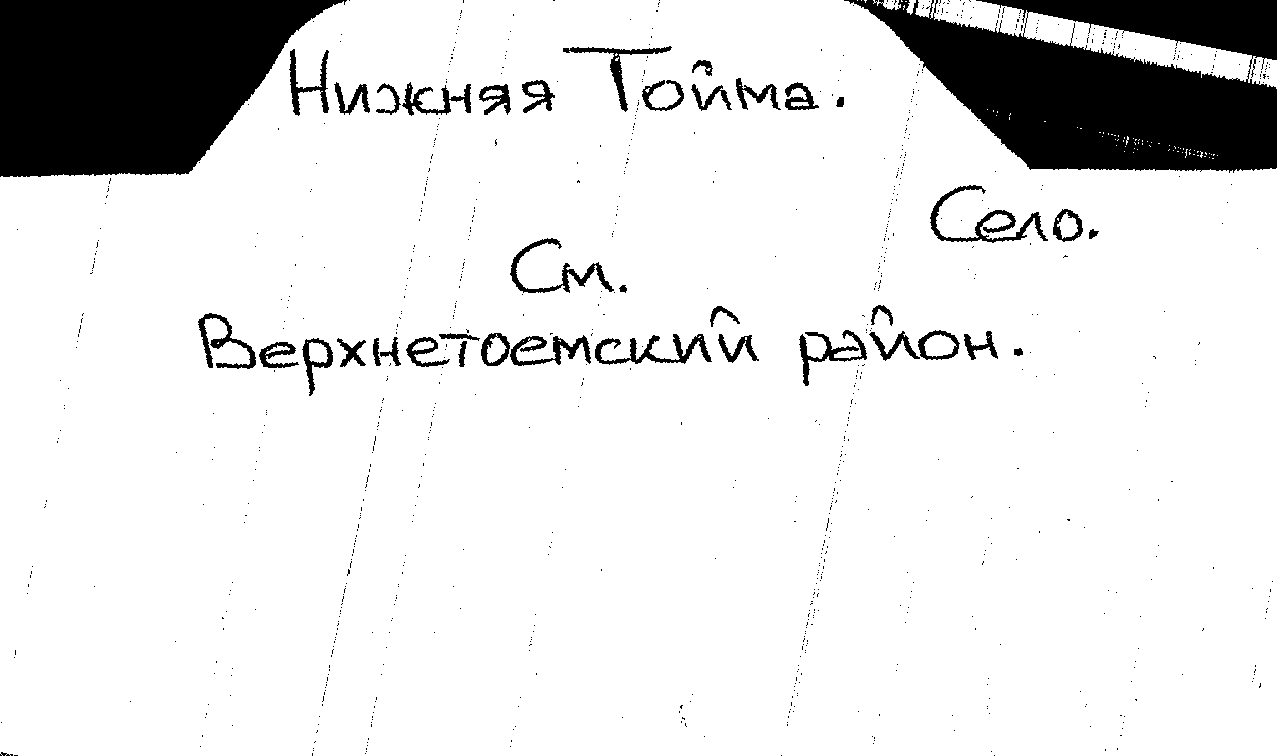 Нижняя Тойма.
Село.
См.
Верхнетоемский район.